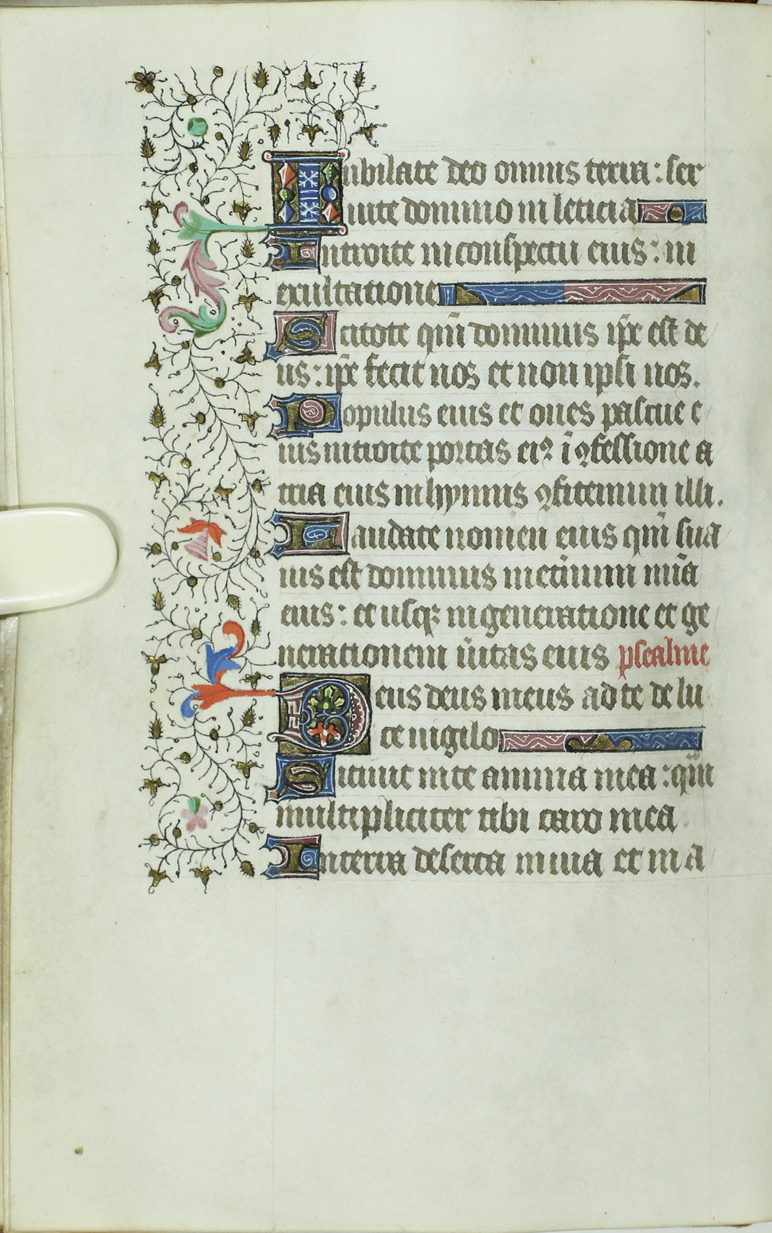 Iubilate deo omnis terra: ser
uite domino in leticia
Introite in conspectu eius: in
exultatione
Scitote qm̄ dominus ip̄e est de
us: ip̄e fecit nos et non ipsi nos.
Populus eius et oues pascue e
ius introite portas eiꝰ ī ꝯfessione a
tria eius in hymnis ꝯfitemini illi.
Laudate nomen eius qm̄ sua
uis est dominus in et̄num mīa
eius: et usqꝫ in generatione et ge
nerationem ūitas eius psealme
Deus deus meus ad te de lu
ce uigilo
Sitiuit in te anima mea: qm̄
multipliciter tibi caro mea
In terra deserta inuia et in a